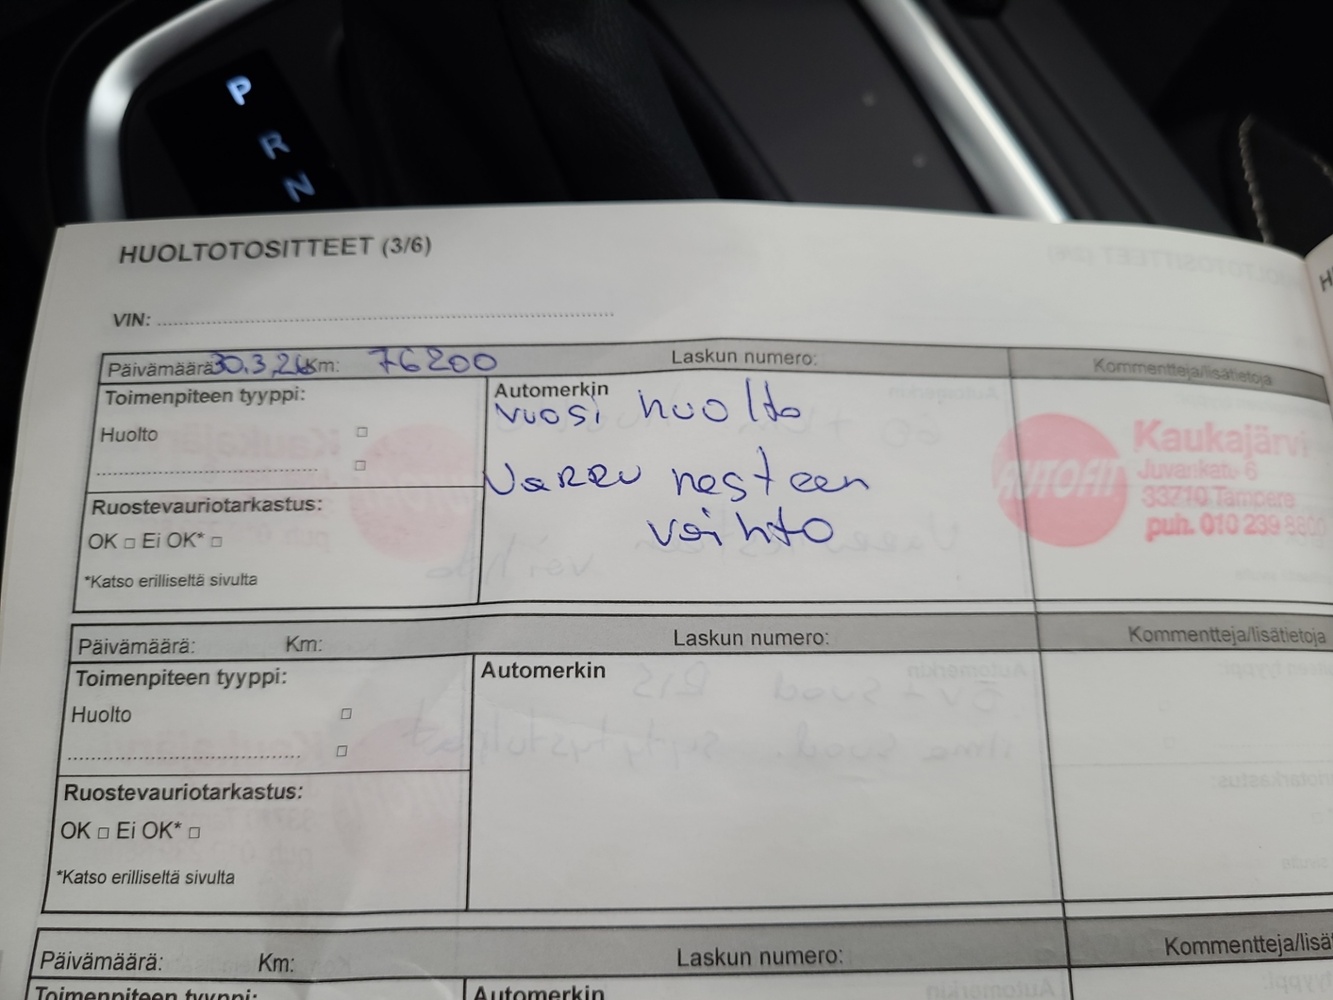 P
R
N
HUOLTOTOSITTEET (3/6)
VIN:
Päivämäärä 30.3.26 Km: 76200 Laskun numero: Kommentteja/lisätietoja
Toimenpiteen tyyppi:
Huolto
Ruostevauriotarkastus:
OK □ Ei OK* □
*Katso erilliseltä sivulta
Automerkin
vuosi huolto
Jarru nesteen
vaihto
AUTOFIT
Kaukajärvi
Juvankatu 6
33710 Tampere
puh. 010 239 8800
Päivämäärä: Km: Laskun numero: Kommentteja/lisätietoja
Toimenpiteen tyyppi:
Huolto
Ruostevauriotarkastus:
OK □ Ei OK* □
*Katso erilliseltä sivulta
Automerkin
Päivämäärä: Km: Laskun numero: Kommentteja/lisät
Toimenpiteen tyyppi:
Automerkin